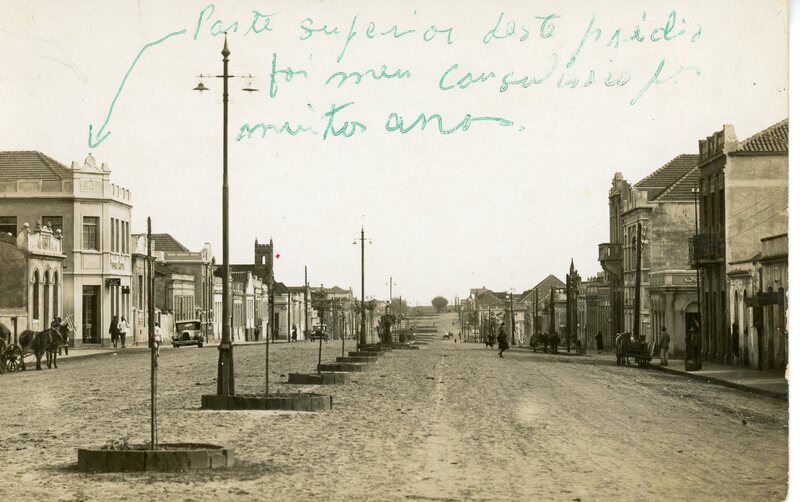 Parte superior deste prédio
foi meu consultório por
muitos anos.